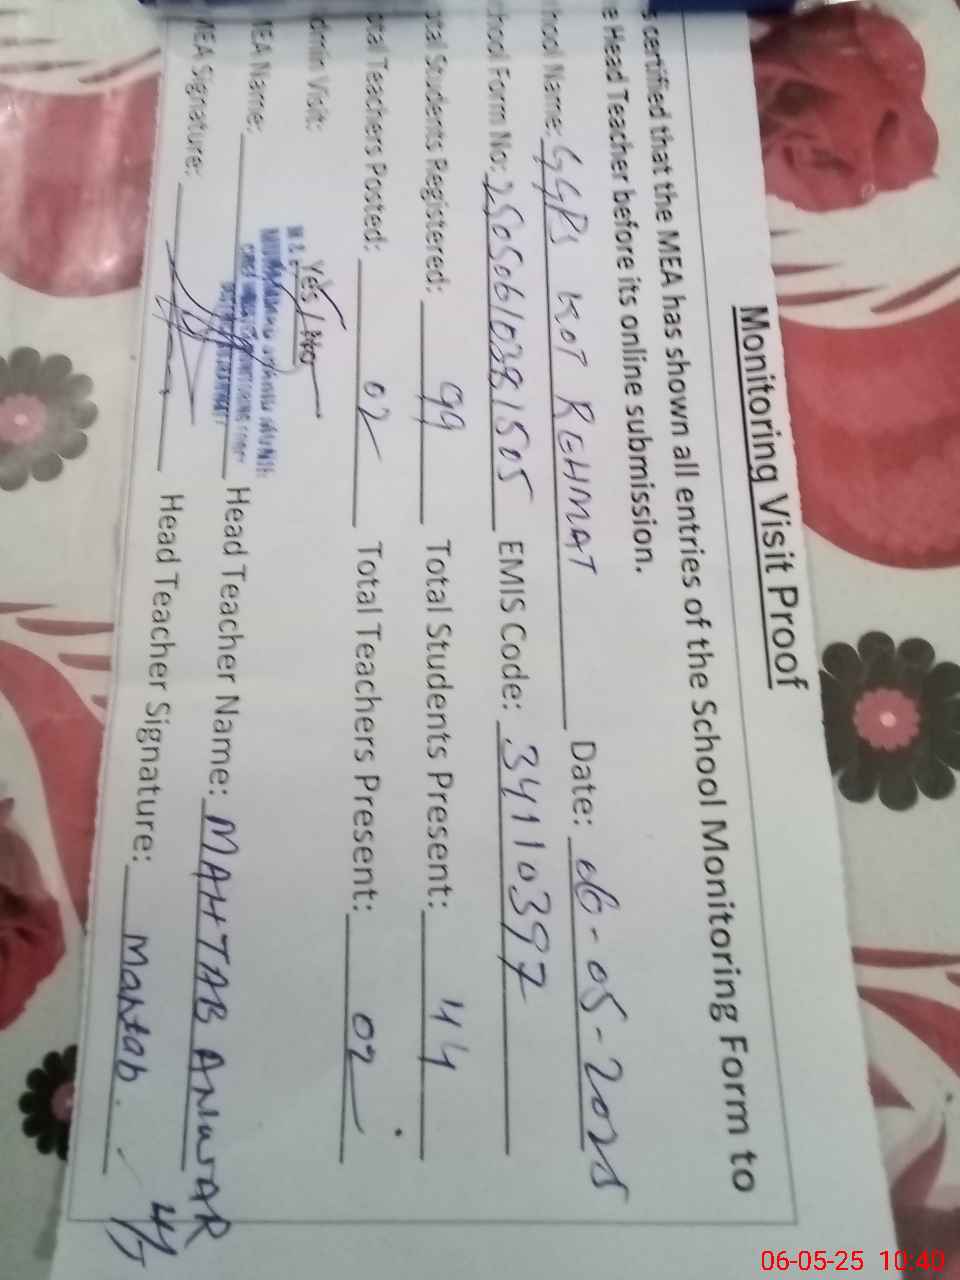 Monitoring Visit Proof
s certified that the MEA has shown all entries of the School Monitoring Form to
e Head Teacher before its online submission.
hool Name: GGPS KOT REHMAT Date: 06-05-2025
chool Form No: EMIS Code: 34110397
otal Students Registered: 99 Total Students Present: 44
otal Teachers Posted: 02 Total Teachers Present: 02
dmin Visit: Yes / No
MEA Name: Head Teacher Name: MAHTAB ANWAR
MEA Signature: Head Teacher Signature: Mahtab.
06-05-25 10:40